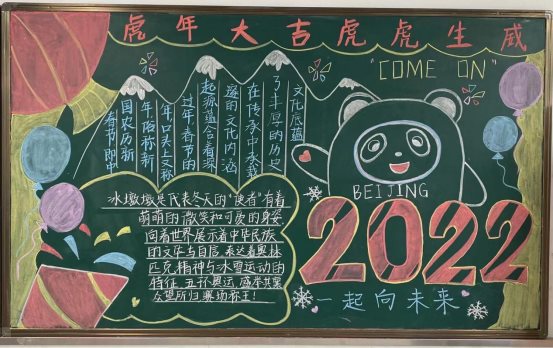 虎年大吉虎虎生威
"COME ON"
春节即中
国农历新
年,俗称新
年,口头上又称
过年,春节的
起源蕴含着深
邃的文化内涵
在传承中承载
了丰厚的历史
文化底蕴
BEIJING
2022
一起向未来
冰墩墩是代表冬天的“使者”有着
萌萌的微笑和可爱的身姿
向着世界展示着中华民族
的文华与自信 表达着奥林
匹克精神与冰雪运动的
特征 五环奥运 盛举共襄
众望所归赛场称王!